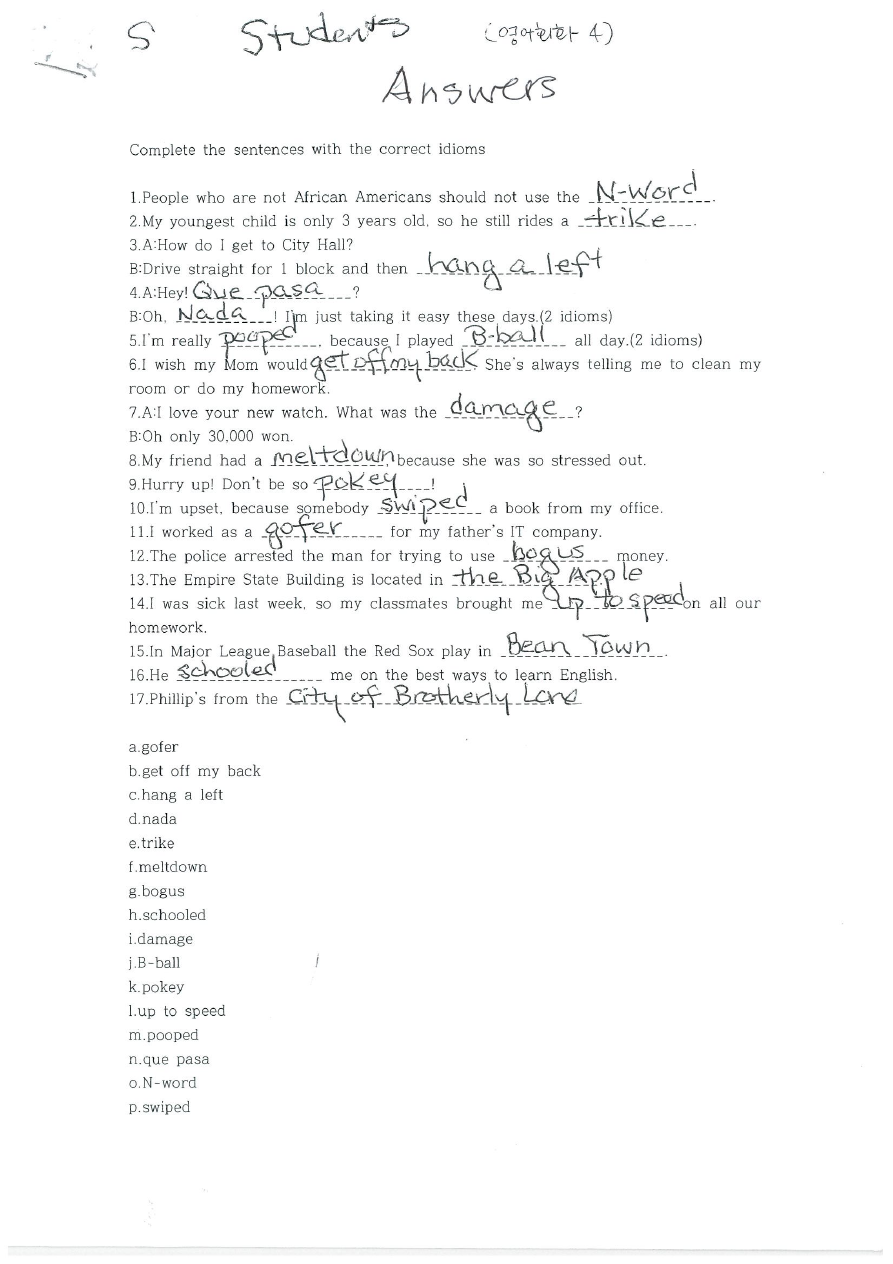 S Students (영어회화 4)
Answers
Complete the sentences with the correct idioms
1.People who are not African Americans should not use the N-Word.
2.My youngest child is only 3 years old, so he still rides a trike.
3.A:How do I get to City Hall?
B:Drive straight for 1 block and then hang a left
4.A:Hey! Que pasa?
B:Oh, Nada! I'm just taking it easy these days.(2 idioms)
5.I'm really pooped, because I played B-ball all day.(2 idioms)
6.I wish my Mom would get off my back. She's always telling me to clean my
room or do my homework.
7.A:I love your new watch. What was the damage?
B:Oh only 30,000 won.
8.My friend had a meltdown, because she was so stressed out.
9.Hurry up! Don't be so pokey!
10.I'm upset, because somebody swiped a book from my office.
11.I worked as a gofer for my father's IT company.
12.The police arrested the man for trying to use bogus money.
13.The Empire State Building is located in the Big Apple
14.I was sick last week, so my classmates brought me up to speed on all our
homework.
15.In Major League Baseball the Red Sox play in Bean Town.
16.He schooled me on the best ways to learn English.
17.Phillip's from the City of Brotherly Love
a.gofer
b.get off my back
c.hang a left
d.nada
e.trike
f.meltdown
g.bogus
h.schooled
i.damage
j.B-ball
k.pokey
l.up to speed
m.pooped
n.que pasa
o.N-word
p.swiped